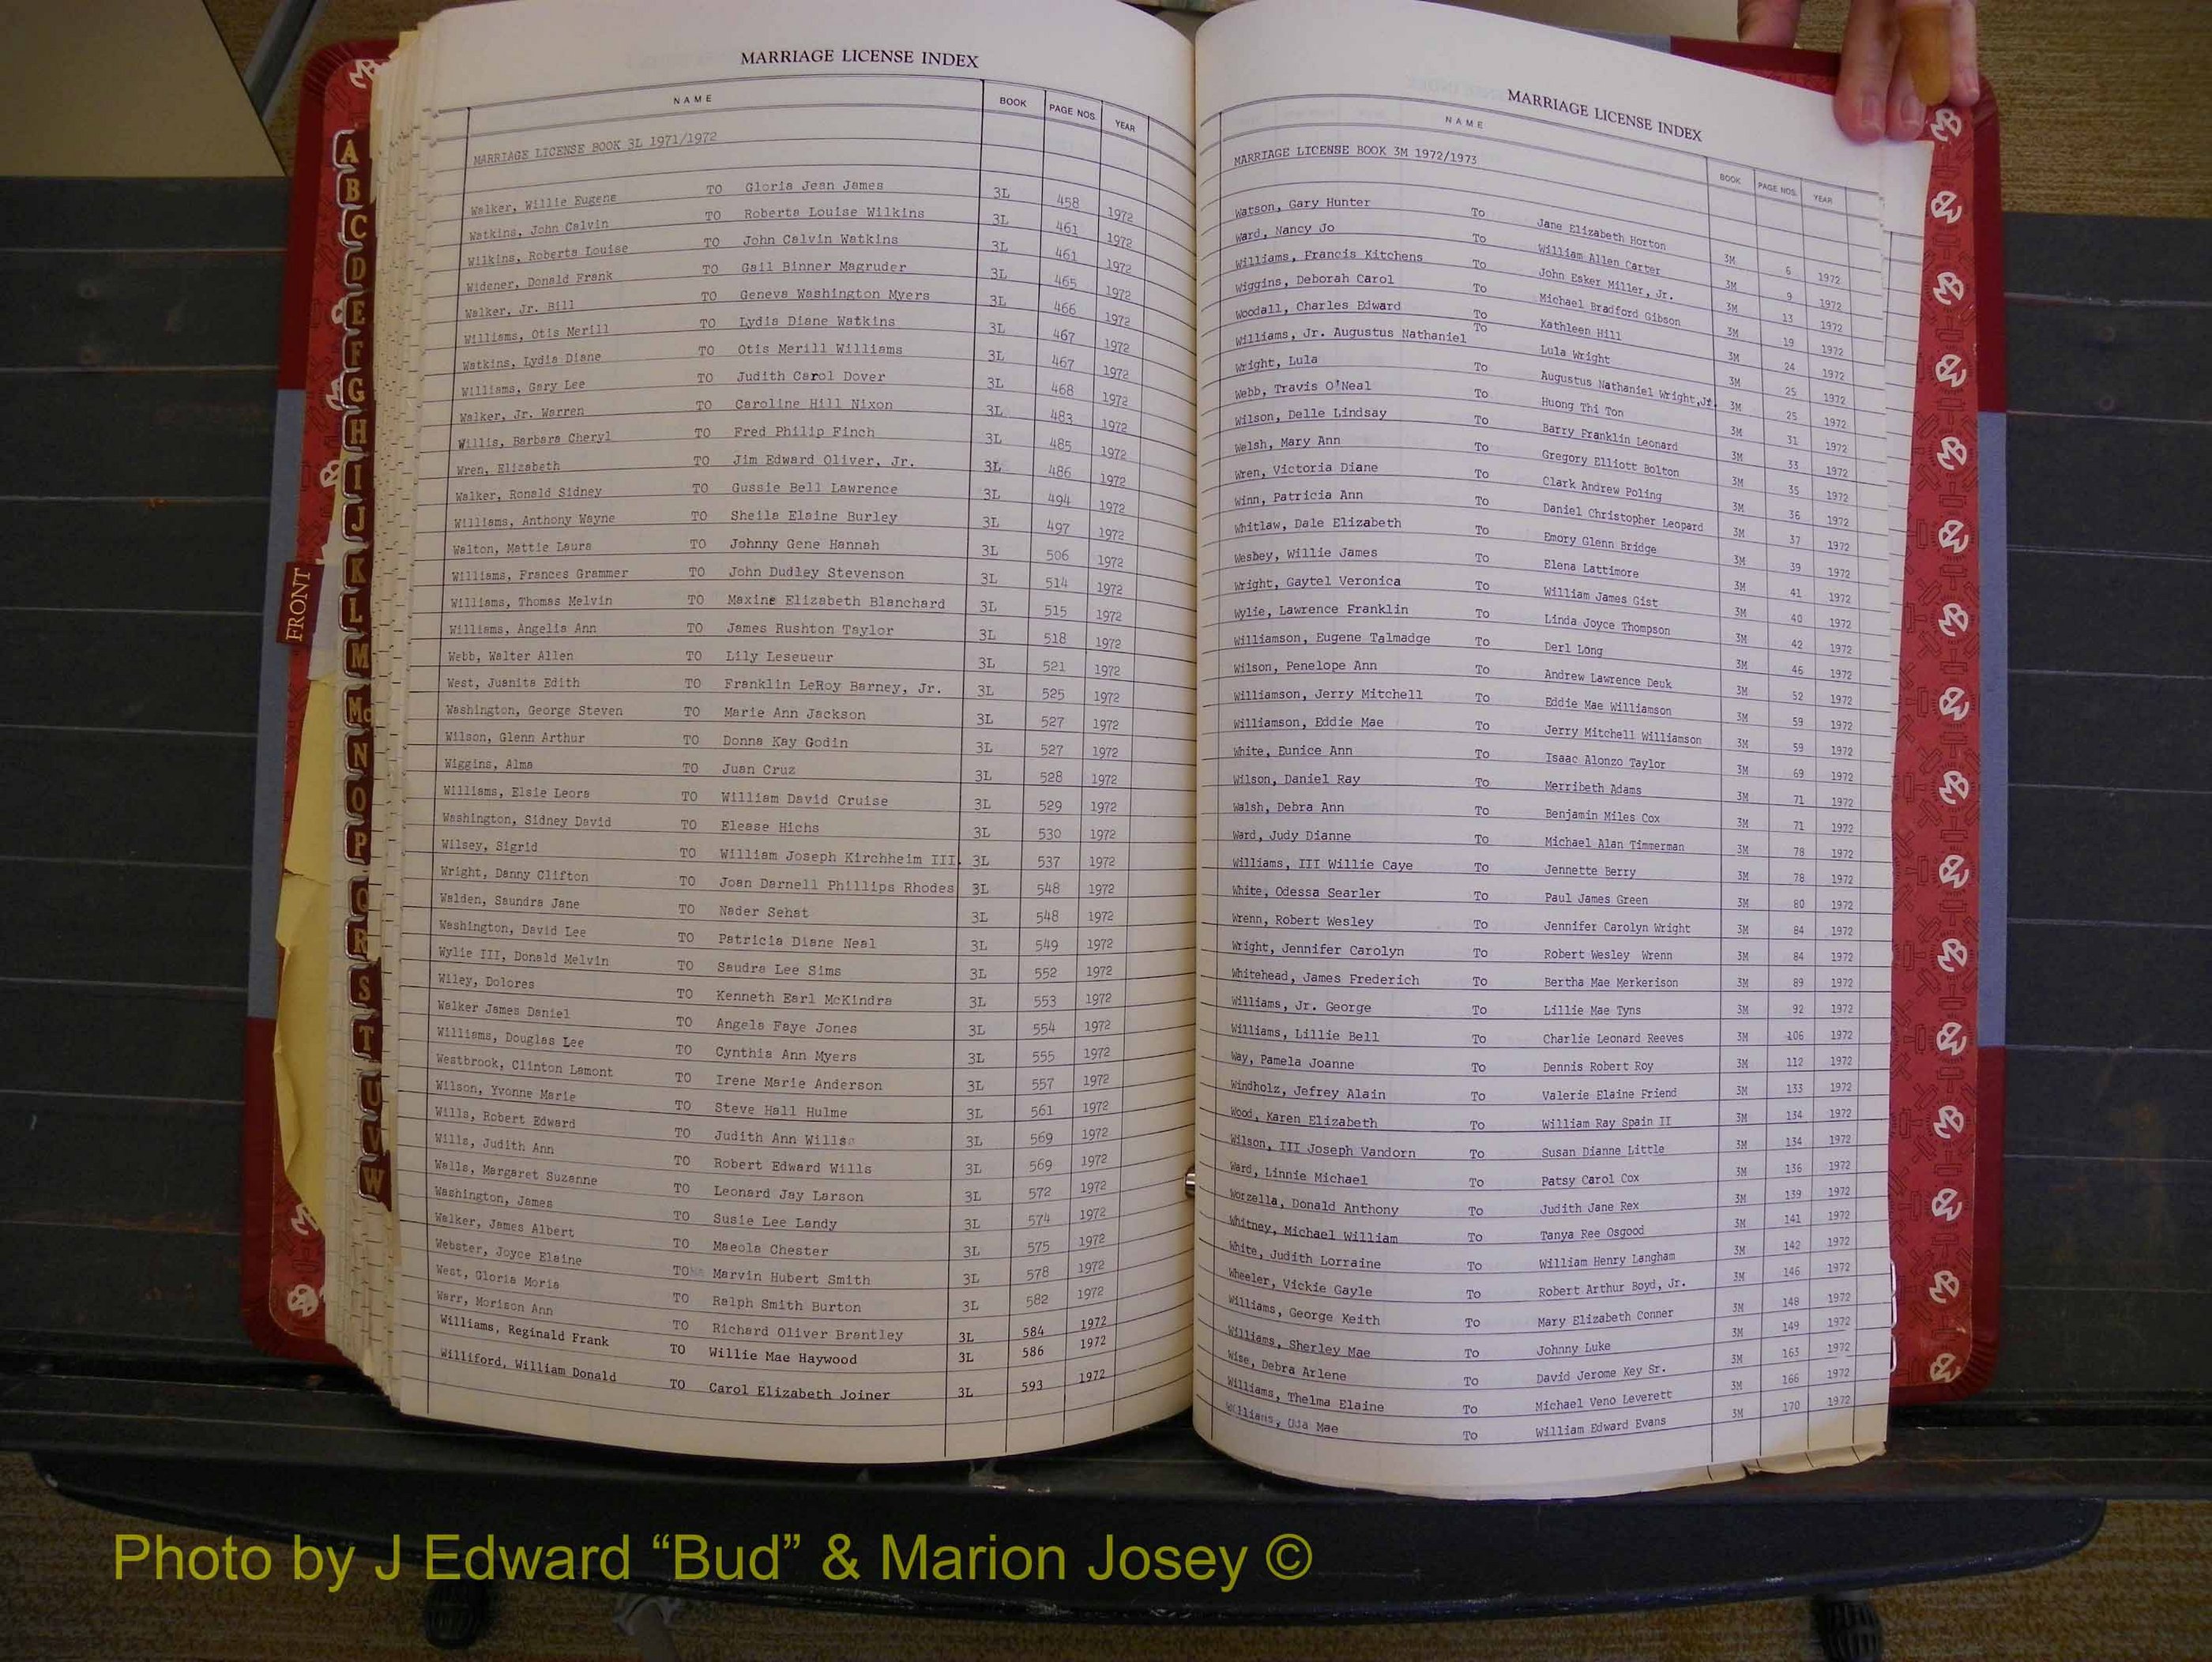 MARRIAGE LICENSE INDEX
NAME BOOK PAGE NOS. YEAR
MARRIAGE LICENSE BOOK 3L 1971/1972
Walker, Willie Eugene TO Gloria Jean James 3L 458 1972
Watkins, John Calvin TO Roberta Louise Wilkins 3L 461 1972
Wilkins, Roberta Louise TO John Calvin Watkins 3L 461 1972
Widener, Donald Frank TO Gail Binner Magruder 3L 465 1972
Walker, Jr. Bill TO Geneva Washington Myers 3L 466 1972
Williams, Otis Merill TO Lydia Diane Watkins 3L 467 1972
Watkins, Lydia Diane TO Otis Merill Williams 3L 467 1972
Williams, Gary Lee TO Judith Carol Dover 3L 468 1972
Walker, Jr. Warren TO Caroline Hill Nixon 3L 483 1972
Willis, Barbara Cheryl TO Fred Philip Finch 3L 485 1972
Wren, Elizabeth TO Jim Edward Oliver, Jr. 3L 486 1972
Walker, Ronald Sidney TO Gussie Bell Lawrence 3L 494 1972
Williams, Anthony Wayne TO Sheila Elaine Burley 3L 497 1972
Walton, Mattie Laura TO Johnny Gene Hannah 3L 506 1972
Williams, Frances Grammer TO John Dudley Stevenson 3L 514 1972
Williams, Thomas Melvin TO Maxine Elizabeth Blanchard 3L 515 1972
Williams, Angelia Ann TO James Rushton Taylor 3L 518 1972
Webb, Walter Allen TO Lily Leseueur 3L 521 1972
West, Juanita Edith TO Franklin LeRoy Barney, Jr. 3L 525 1972
Washington, George Steven TO Marie Ann Jackson 3L 527 1972
Wilson, Glenn Arthur TO Donna Kay Godin 3L 527 1972
Wiggins, Alma TO Juan Cruz 3L 528 1972
Williams, Elsie Leora TO William David Cruise 3L 529 1972
Washington, Sidney David TO Elease Hichs 3L 530 1972
Wilsey, Sigrid TO William Joseph Kirchheim III. 3L 537 1972
Wright, Danny Clifton TO Joan Darnell Phillips Rhodes 3L 548 1972
Walden, Saundra Jane TO Nader Sehat 3L 548 1972
Washington, David Lee TO Patricia Diane Neal 3L 549 1972
Wylie III, Donald Melvin TO Saudra Lee Sims 3L 552 1972
Wiley, Dolores TO Kenneth Earl McKindra 3L 553 1972
Walker James Daniel TO Angela Faye Jones 3L 554 1972
Williams, Douglas Lee TO Cynthia Ann Myers 3L 555 1972
Westbrook, Clinton Lamont TO Irene Marie Anderson 3L 557 1972
Wilson, Yvonne Marie TO Steve Hall Hulme 3L 561 1972
Wills, Robert Edward TO Judith Ann Wills 3L 569 1972
Wills, Judith Ann TO Robert Edward Wills 3L 569 1972
Walls, Margaret Suzanne TO Leonard Jay Larson 3L 572 1972
Washington, James TO Susie Lee Landy 3L 574 1972
Walker, James Albert TO Maeola Chester 3L 575 1972
Webster, Joyce Elaine TO Marvin Hubert Smith 3L 578 1972
West, Gloria Moria TO Ralph Smith Burton 3L 582 1972
Warr, Morison Ann TO Richard Oliver Brantley 3L 584 1972
Williams, Reginald Frank TO Willie Mae Haywood 3L 586 1972
Williford, William Donald TO Carol Elizabeth Joiner 3L 593 1972
MARRIAGE LICENSE INDEX
NAME BOOK PAGE NOS. YEAR
MARRIAGE LICENSE BOOK 3M 1972/1973
Watson, Gary Hunter To Jane Elizabeth Horton 3M 6 1972
Ward, Nancy Jo To William Allen Carter 3M 9 1972
Williams, Francis Kitchens To John Esker Miller, Jr. 3M 13 1972
Wiggins, Deborah Carol To Michael Bradford Gibson 3M 19 1972
Woodall, Charles Edward To Kathleen Hill 3M 24 1972
Williams, Jr. Augustus Nathaniel To Lula Wright 3M 25 1972
Wright, Lula To Augustus Nathaniel Wright,Jr. 3M 25 1972
Webb, Travis O'Neal To Huong Thi Ton 3M 31 1972
Wilson, Delle Lindsay To Barry Franklin Leonard 3M 33 1972
Welsh, Mary Ann To Gregory Elliott Bolton 3M 35 1972
Wren, Victoria Diane To Clark Andrew Poling 3M 36 1972
Winn, Patricia Ann To Daniel Christopher Leopard 3M 37 1972
Whitlaw, Dale Elizabeth To Emory Glenn Bridge 3M 39 1972
Wesbey, Willie James To Elena Lattimore 3M 41 1972
Wright, Gaytel Veronica To William James Gist 3M 40 1972
Wylie, Lawrence Franklin To Linda Joyce Thompson 3M 42 1972
Williamson, Eugene Talmadge To Derl Long 3M 46 1972
Wilson, Penelope Ann To Andrew Lawrence Deuk 3M 52 1972
Williamson, Jerry Mitchell To Eddie Mae Williamson 3M 59 1972
Williamson, Eddie Mae To Jerry Mitchell Williamson 3M 59 1972
White, Eunice Ann To Isaac Alonzo Taylor 3M 69 1972
Wilson, Daniel Ray To Merribeth Adams 3M 71 1972
Walsh, Debra Ann To Benjamin Miles Cox 3M 71 1972
Ward, Judy Dianne To Michael Alan Timmerman 3M 78 1972
Williams, III Willie Caye To Jennette Berry 3M 78 1972
White, Odessa Searler To Paul James Green 3M 80 1972
Wrenn, Robert Wesley To Jennifer Carolyn Wright 3M 84 1972
Wright, Jennifer Carolyn To Robert Wesley Wrenn 3M 84 1972
Whitehead, James Frederich To Bertha Mae Merkerison 3M 89 1972
Williams, Jr. George To Lillie Mae Tyns 3M 92 1972
Williams, Lillie Bell To Charlie Leonard Reeves 3M 106 1972
Way, Pamela Joanne To Dennis Robert Roy 3M 112 1972
Windholz, Jefrey Alain To Valerie Elaine Friend 3M 133 1972
Wood, Karen Elizabeth To William Ray Spain II 3M 134 1972
Wilson, III Joseph Vandorn To Susan Dianne Little 3M 134 1972
Ward, Linnie Michael To Patsy Carol Cox 3M 136 1972
Worzella, Donald Anthony To Judith Jane Rex 3M 139 1972
Whitney, Michael William To Tanya Ree Osgood 3M 141 1972
White, Judith Lorraine To William Henry Langham 3M 142 1972
Wheeler, Vickie Gayle To Robert Arthur Boyd, Jr. 3M 146 1972
Williams, George Keith To Mary Elizabeth Conner 3M 148 1972
Williams, Sherley Mae To Johnny Luke 149 1972
Wise, Debra Arlene To David Jerome Key Sr. 3M 163 1972
Williams, Thelma Elaine To Michael Veno Leverett 3M 166 1972
Williams, Mae To William Edward Evans 3M 170 1972
FRONT
A
B
C
D
E
F
G
H
I
J
K
L
M
Mc
N
O
P
Q
R
S
T
U
V
W
Photo by J Edward “Bud” & Marion Josey ©